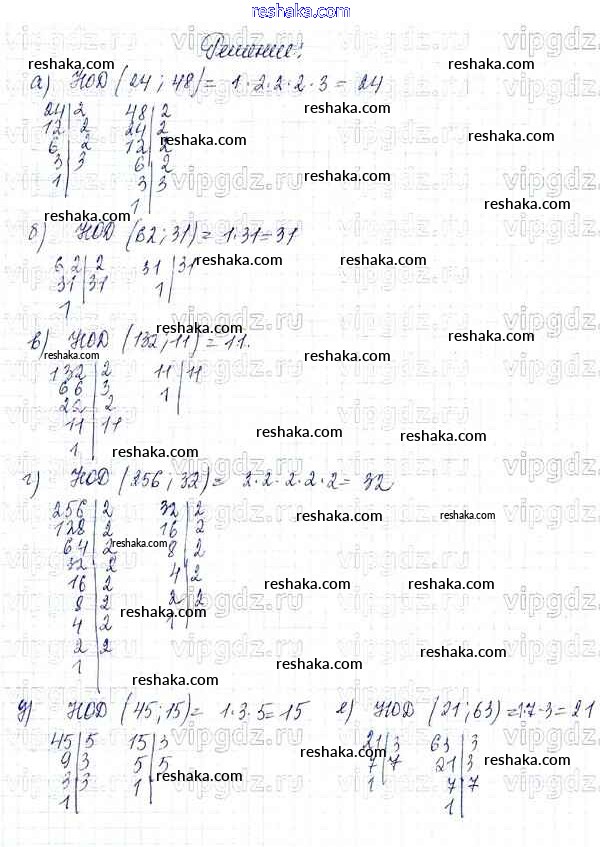 reshaka.com
Решение:
а) НОД (24; 48) = 1·2·2·2·3 = 24
24 | 2 48 | 2
12 | 2 24 | 2
6 | 2 12 | 2
3 | 3 6 | 2
1 | 3 | 3
1
б) НОД (62; 31) = 1·31 = 31
62 | 2 31 | 31
31 | 31 1 |
1
в) НОД (132; 11) = 11.
132 | 2 11 | 11
66 | 3 1 |
22 | 2
11 | 11
1
г) НОД (256; 32) = 2·2·2·2·2 = 32
256 | 2 32 | 2
128 | 2 16 | 2
64 | 2 8 | 2
32 | 2 4 | 2
16 | 2 2 | 2
8 | 2 1 |
4 | 2
2 | 2
1
д) НОД (45; 15) = 1·3·5 = 15 е) НОД (21; 63) = 17·3 = 21
45 | 5 15 | 3 21 | 3 63 | 3
9 | 3 5 | 5 7 | 7 21 | 3
3 | 3 1 | 1 | 7 | 7
1 | 1 |